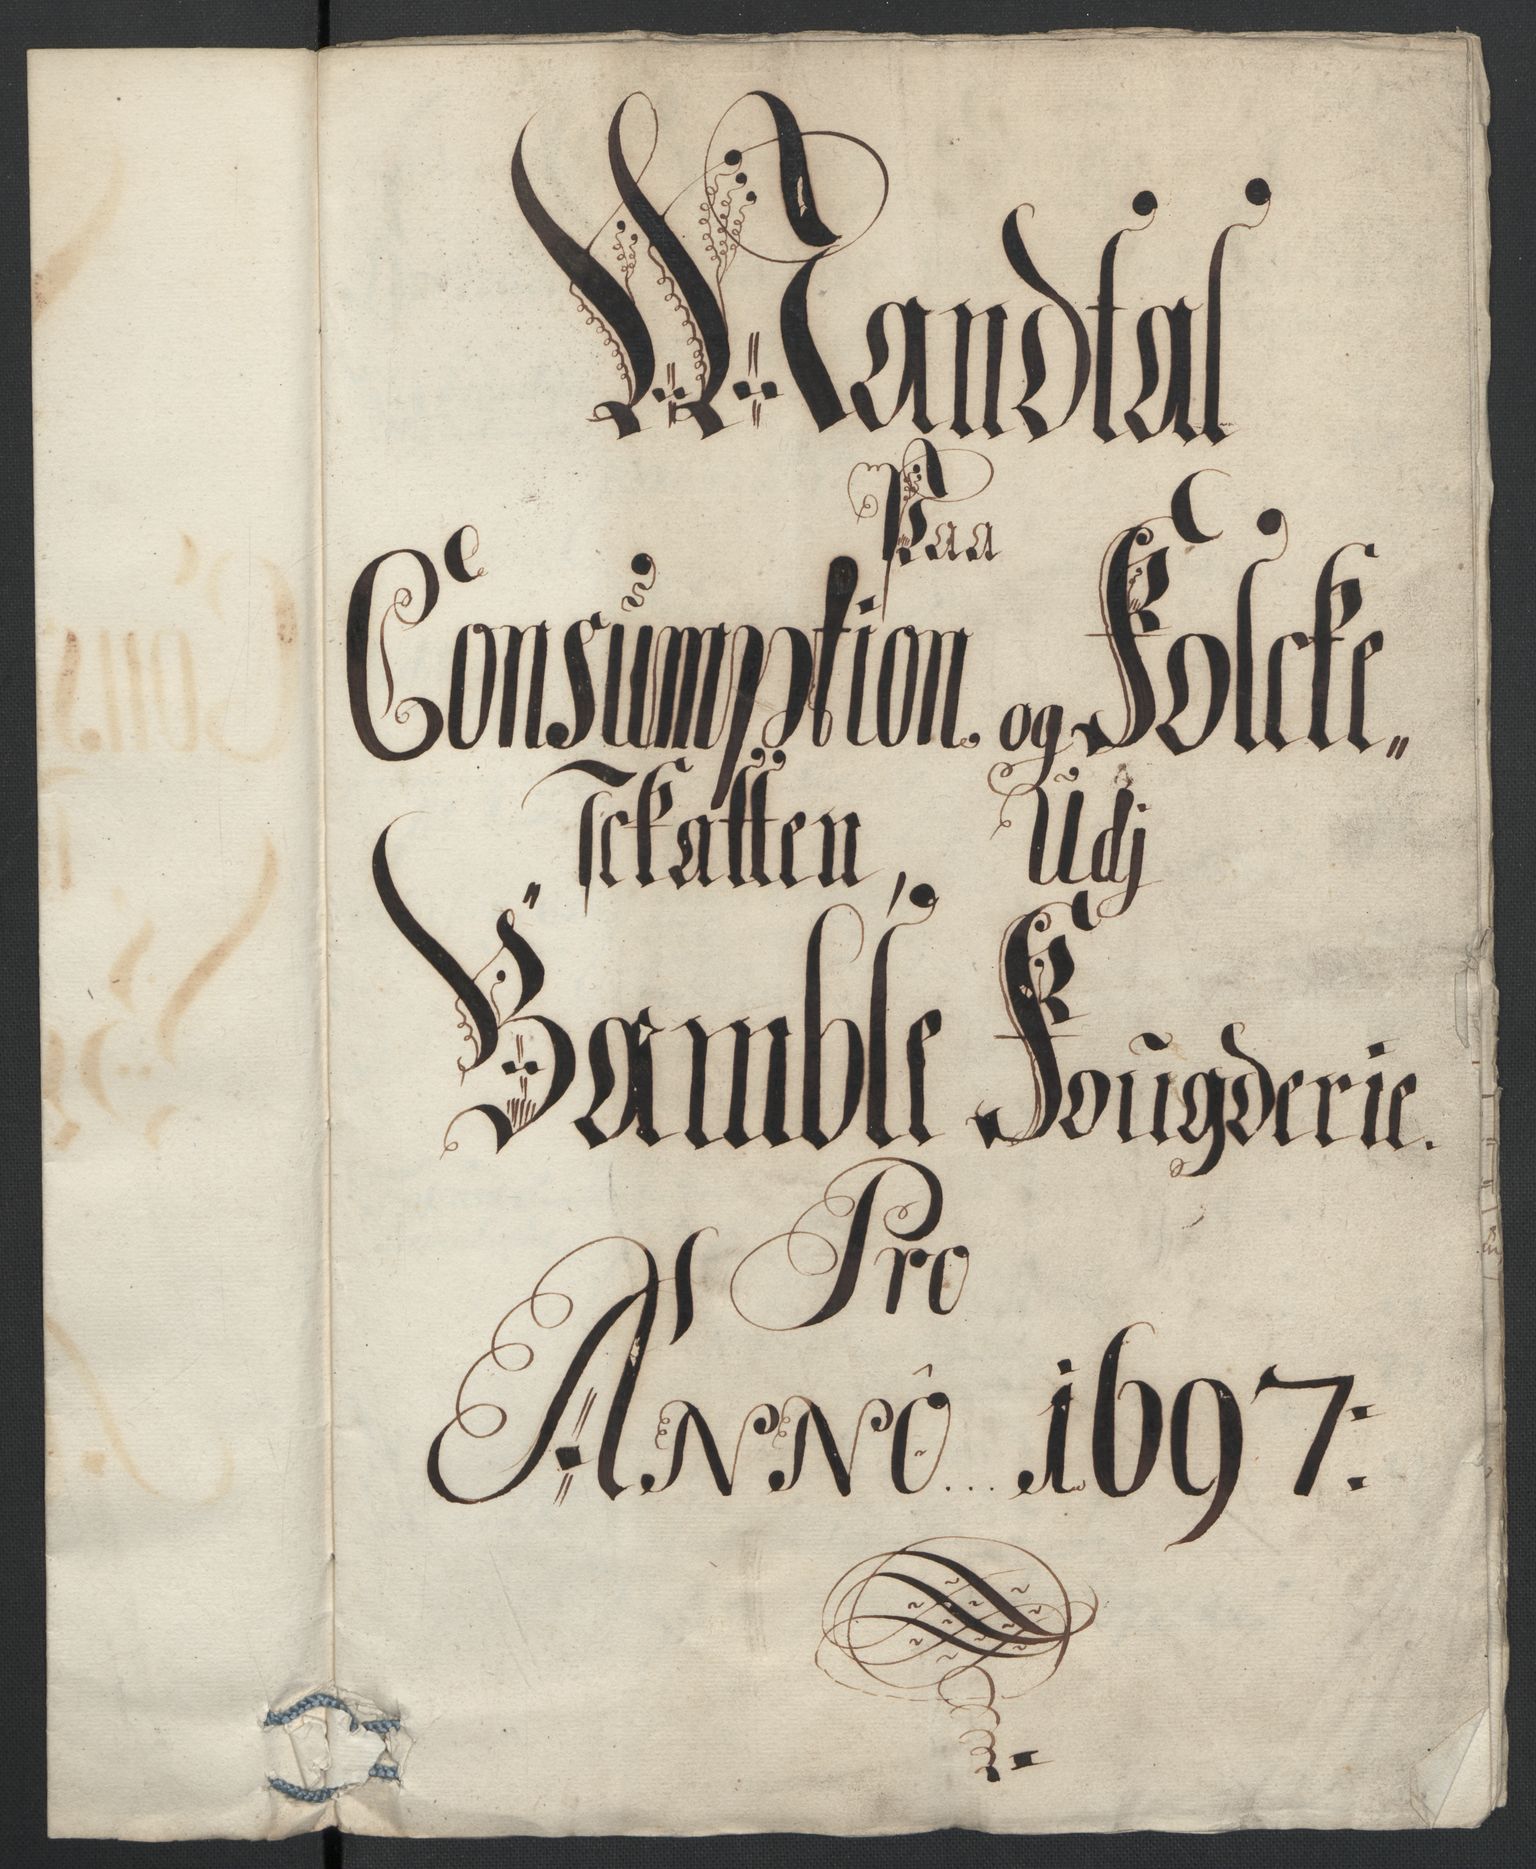 Mandtal
Paa
Consumption og Folcke„
„Sckatten, Udj
Bamble Fougderie.
Pro
Anno... 1697: